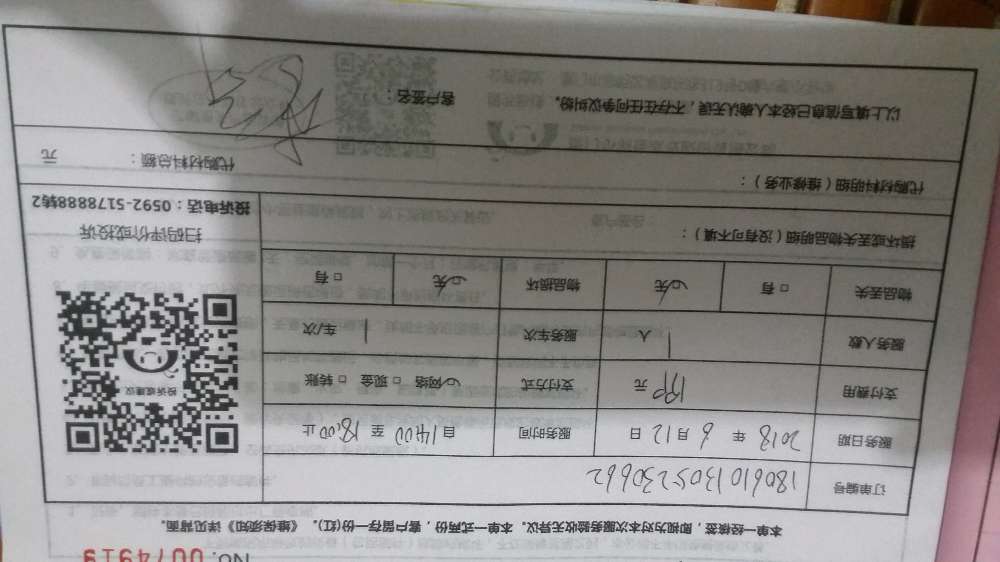 No. 0074919
本单一经核签，即视为对本次服务验收无异议。本单一式两份，客户留存一份(红)。《维保须知》详见背面。
订单编号 180610130523062
服务日期 2018 年 6 月 12 日 服务时间 自 14:00 至 18:00 止
支付费用 元 支付方式 ☑网络 □现金 □转账
服务人数 1 人 服务车次 1 车/次
物品丢失 □有 ☑无 物品损坏 ☑无 □有
投诉或建议
损坏或丢失物品明细（没有可不填）：
扫码评价或投诉
投诉电话：0592-5178888转2
代购材料明细（维修业务）：
代购材料总额： 元
以上填写信息已经本人确认无误，不存在任何争议纠纷。 客户签名：